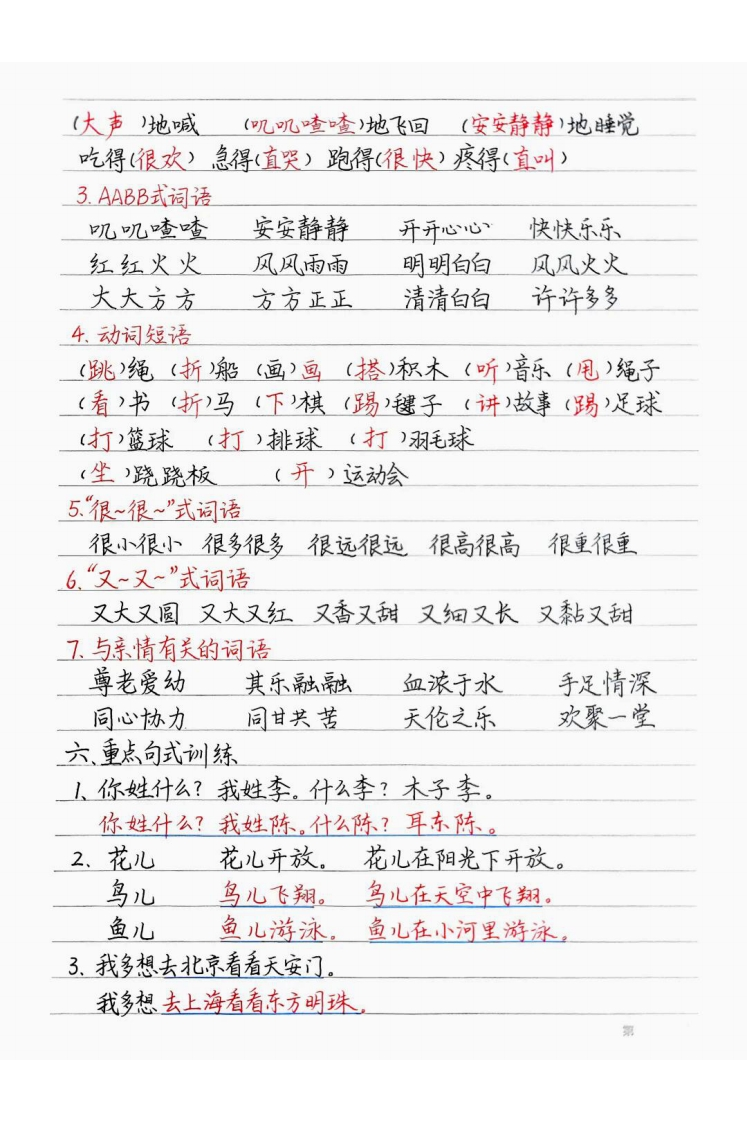 (大声)地喊 (叽叽喳喳)地飞回 (安安静静)地睡觉
吃得(很欢) 急得(直哭) 跑得(很快) 疼得(直叫)
3. AABB式词语
叽叽喳喳 安安静静 开开心心 快快乐乐
红红火火 风风雨雨 明明白白 风风火火
大大方方 方方正正 清清白白 许许多多
4. 动词短语
(跳)绳 (折)船 (画)画 (搭)积木 (听)音乐 (甩)绳子
(看)书 (折)马 (下)棋 (踢)毽子 (讲)故事 (踢)足球
(打)篮球 (打)排球 (打)羽毛球
(坐)跷跷板 (开)运动会
5.“很~很~”式词语
很小很小 很多很多 很远很远 很高很高 很重很重
6.“又~又~”式词语
又大又圆 又大又红 又香又甜 又细又长 又黏又甜
7. 与亲情有关的词语
尊老爱幼 其乐融融 血浓于水 手足情深
同心协力 同甘共苦 天伦之乐 欢聚一堂
六、重点句式训练
1、你姓什么？我姓李。什么李？木子李。
你姓什么？我姓陈。什么陈？耳东陈。
2、花儿 花儿开放。 花儿在阳光下开放。
鸟儿 鸟儿飞翔。 鸟儿在天空中飞翔。
鱼儿 鱼儿游泳。 鱼儿在小河里游泳。
3、我多想去北京看看天安门。
我多想去上海看看东方明珠。
第